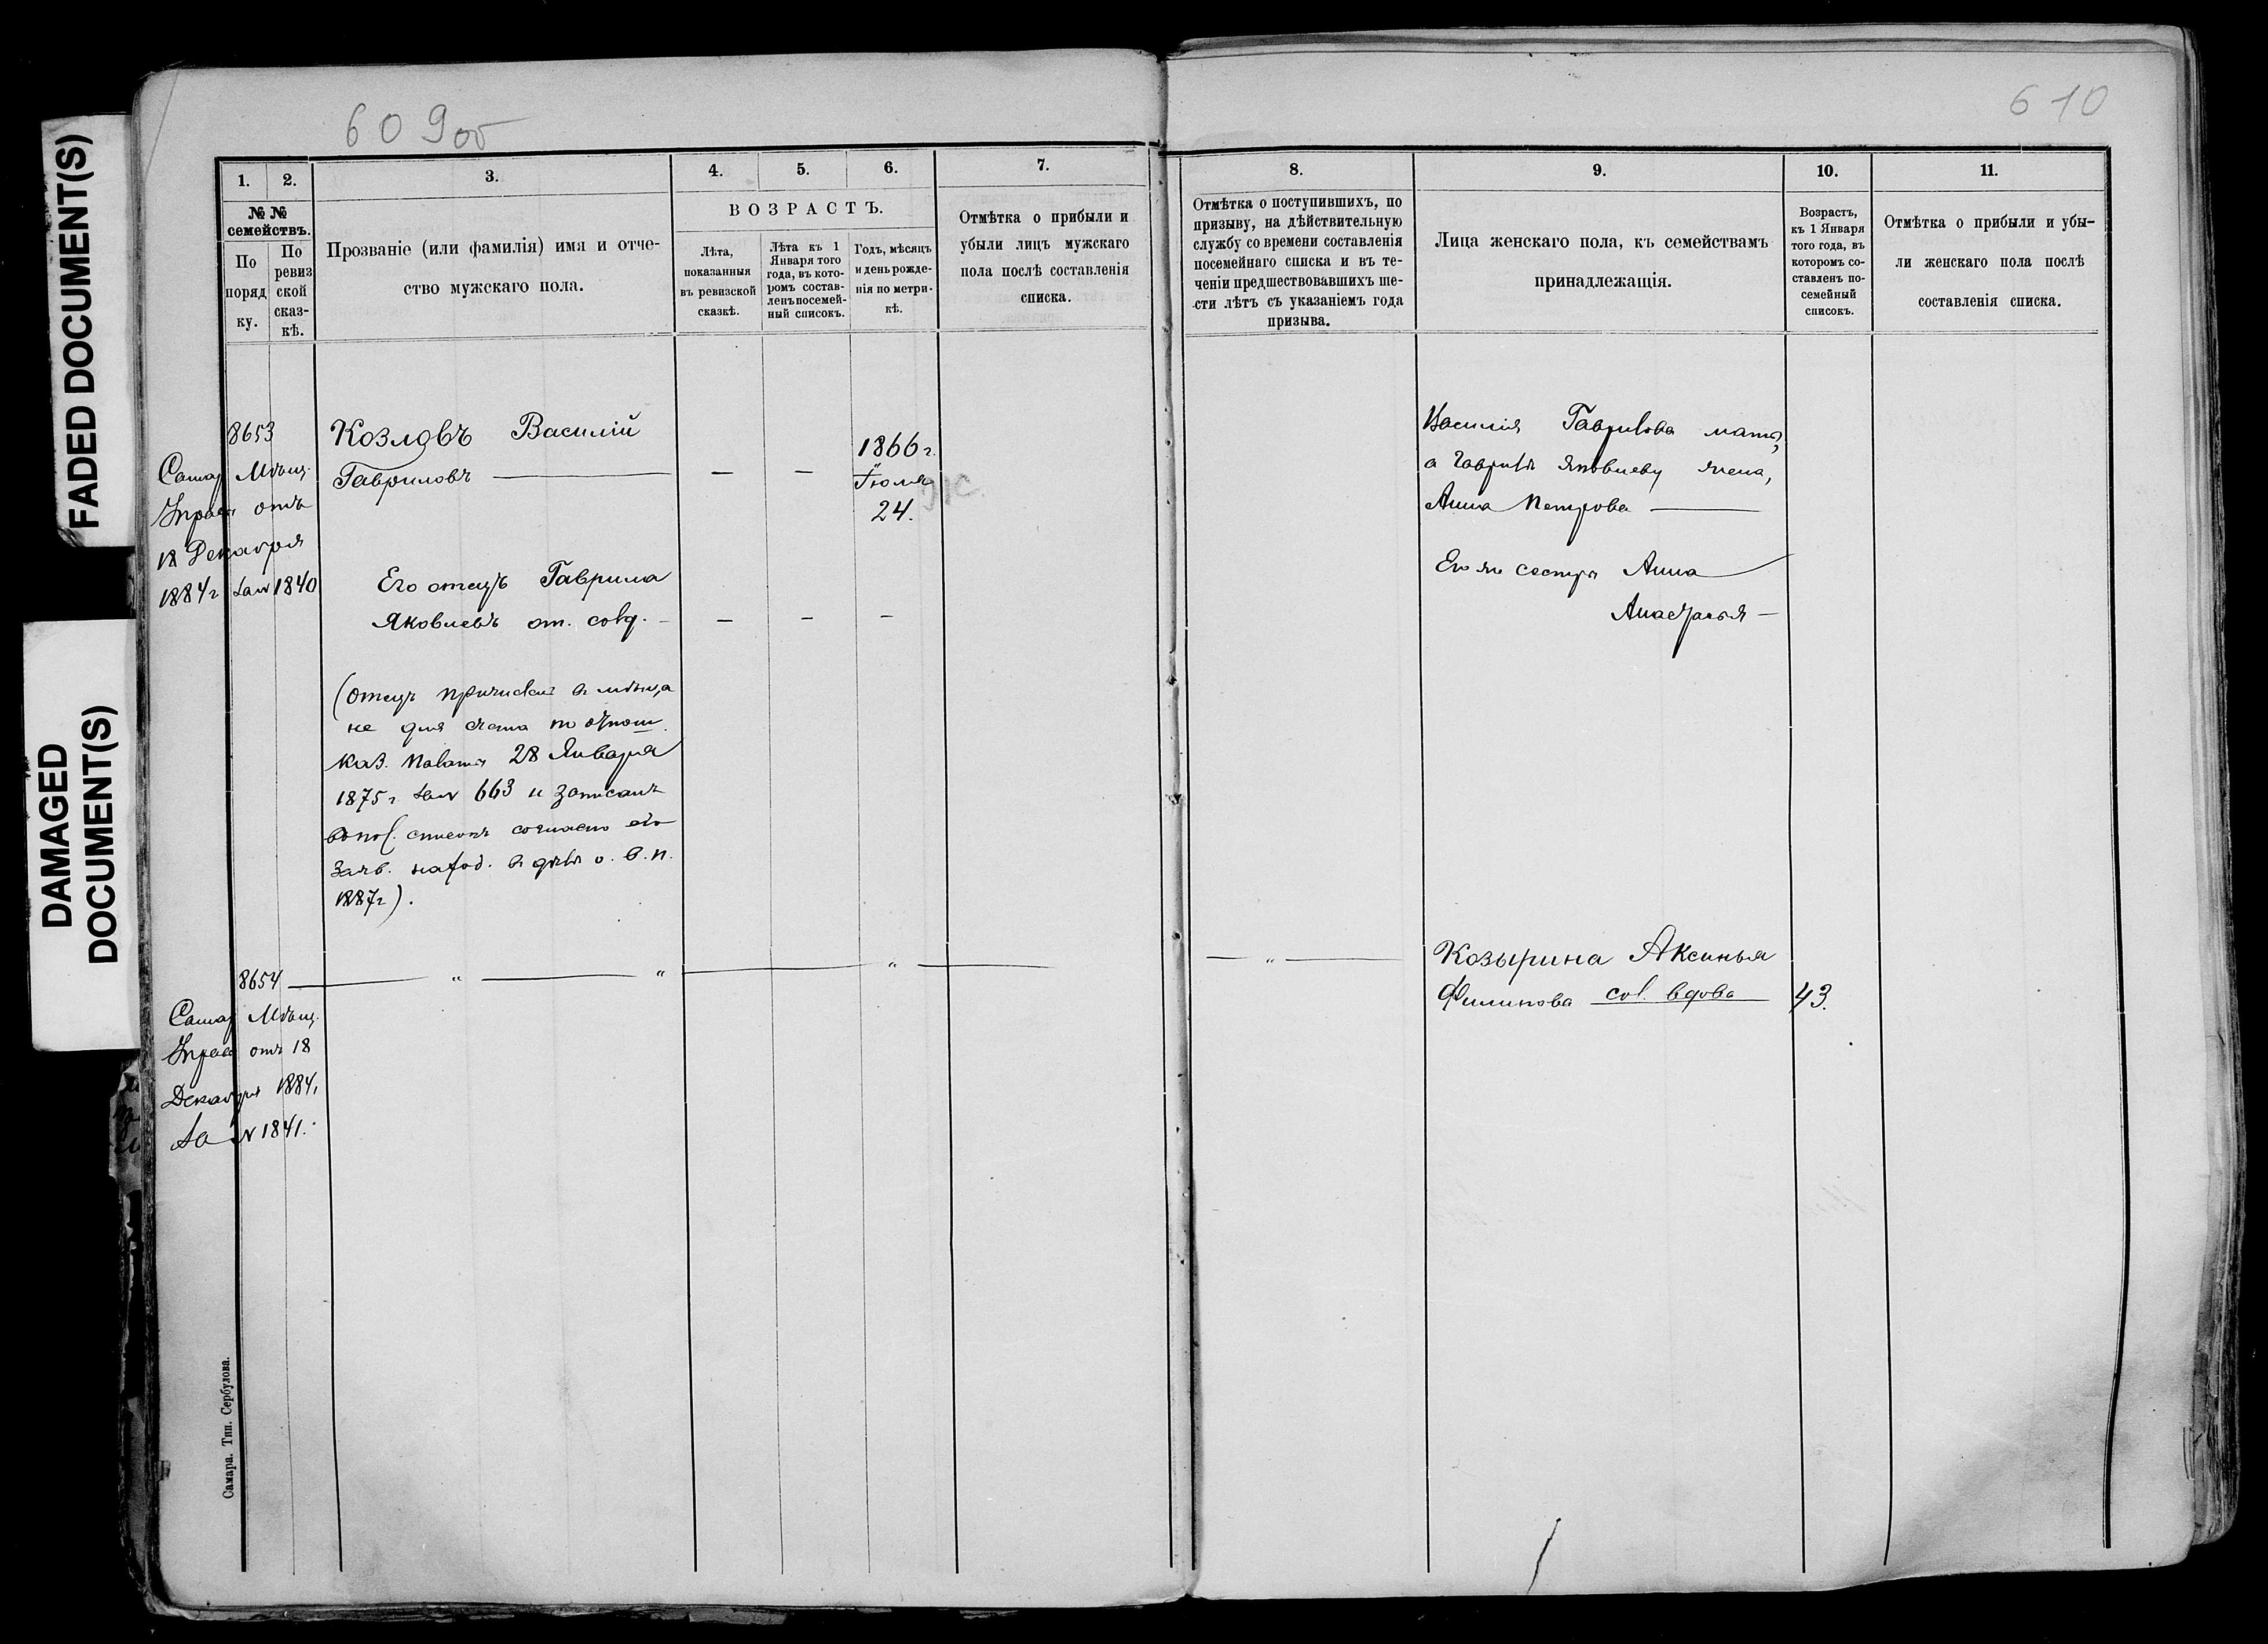 FADED DOCUMENT(S)
DAMAGED
DOCUMENT(S)
609об
1.
2.
3.
4.
5.
6.
7.
№ №
семействъ.
По
поряд
ку.
По
ревиз
ской
сказ-
кѣ.
Прозваніе (или фамилія) имя и отче-
ство мужскаго пола.
ВОЗРАСТЪ.
Лѣта,
показанныя
въ ревизской
сказкѣ.
Лѣта къ 1
Января того
года, въ кото-
ромъ состав-
ленъ посемей-
ный списокъ.
Годъ, мѣсяцъ
и день рожде-
нія по метри-
кѣ.
Отмѣтка о прибыли и
убыли лицъ мужскаго
пола послѣ составленія
списка.
8653
Самар Мѣщ.
Управ отъ
18 Декабря
1884г за № 1840
Козловъ Василій
Гавриловъ — — —
1866г.
Іюля
24.
Его отецъ Гаврила
Яковлевъ от. солд. — — — —
(отецъ причислен в мѣщ
не для счета по отнош.
каз. палаты 28 Января
1875г за № 663 и записанъ
списокъ согласно его
заяв. наход. в дѣлѣ о. в. п.
1887г).
8654 — " — " — " —
Самар Мѣщ.
Управ отъ 18
Декабря 1884г
за № 1841.
Самара. Тип. Сербулова.
610
8.
9.
10.
11.
Отмѣтка о поступившихъ, по
призыву, на дѣйствительную
службу со времени составленія
посемейнаго списка и въ те-
ченіи предшествовавшихъ ше-
сти лѣтъ съ указаніемъ года
призыва.
Лица женскаго пола, къ семействамъ
принадлежащія.
Возрастъ,
къ 1 Января
того года, въ
которомъ со-
ставленъ по-
семейный
списокъ.
Отмѣтка о прибыли и убы-
ли женскаго пола послѣ
составленія списка.
Василія Гаврилова мать,
а Гаврилы Яковлеву жена,
Анна Петрова —
Его же сестры Анна
Анастасья —
— " — Козырина Аксинья
Филипова сол. вдова 43.